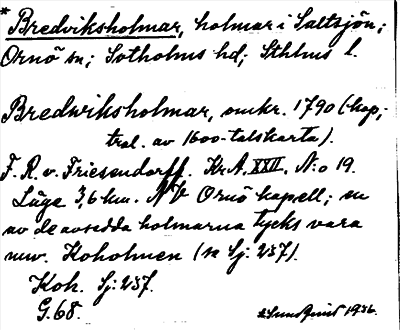 * Bredviksholmar, holmar i Saltsjön;
Ornö sn; Sotholms hd; Sthlms l.
Bredwiksholmar, omkr. 1790 (kop;
tral. av 1600-talskarta).
F. R. v. Friesendorff. Kr.A. XXII. N:o 19.
Läge 3,6 km. NV Ornö kapell; en
av de avsedda holmarna tycks vara
nuv. Koholmen (se Sj: 257).
Koh. Sj: 257.
G. 68.
1936.